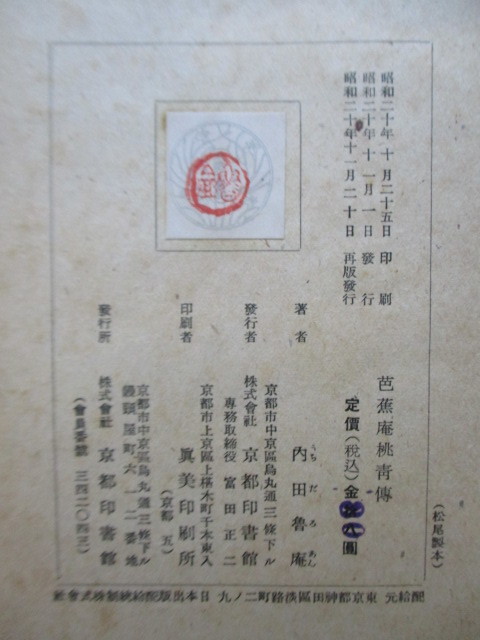 昭和二十年 十月二十五日 印刷
昭和二十年 十一月一日 發行
昭和二十年十一月二十日 再版發行
芭蕉庵桃青傳
(松尾製本)
定價(税込)金 八圓
著者 內田魯庵
うちだろあん
京都市中京區烏丸通三條下ル
發行者 株式會社 京都印書館
專務取締役 富田正二
京都市上京區上 木町千木東入
印刷者 眞美印刷所
(京都 五)
京都市中京區烏丸通三條下ル
饅頭屋町六一二番地
發行所 株式會社 京都印書館
(會員番號 三四二〇四三)
配給元 東京都神田區淡路町二ノ九 日本出版配給統制株式會社